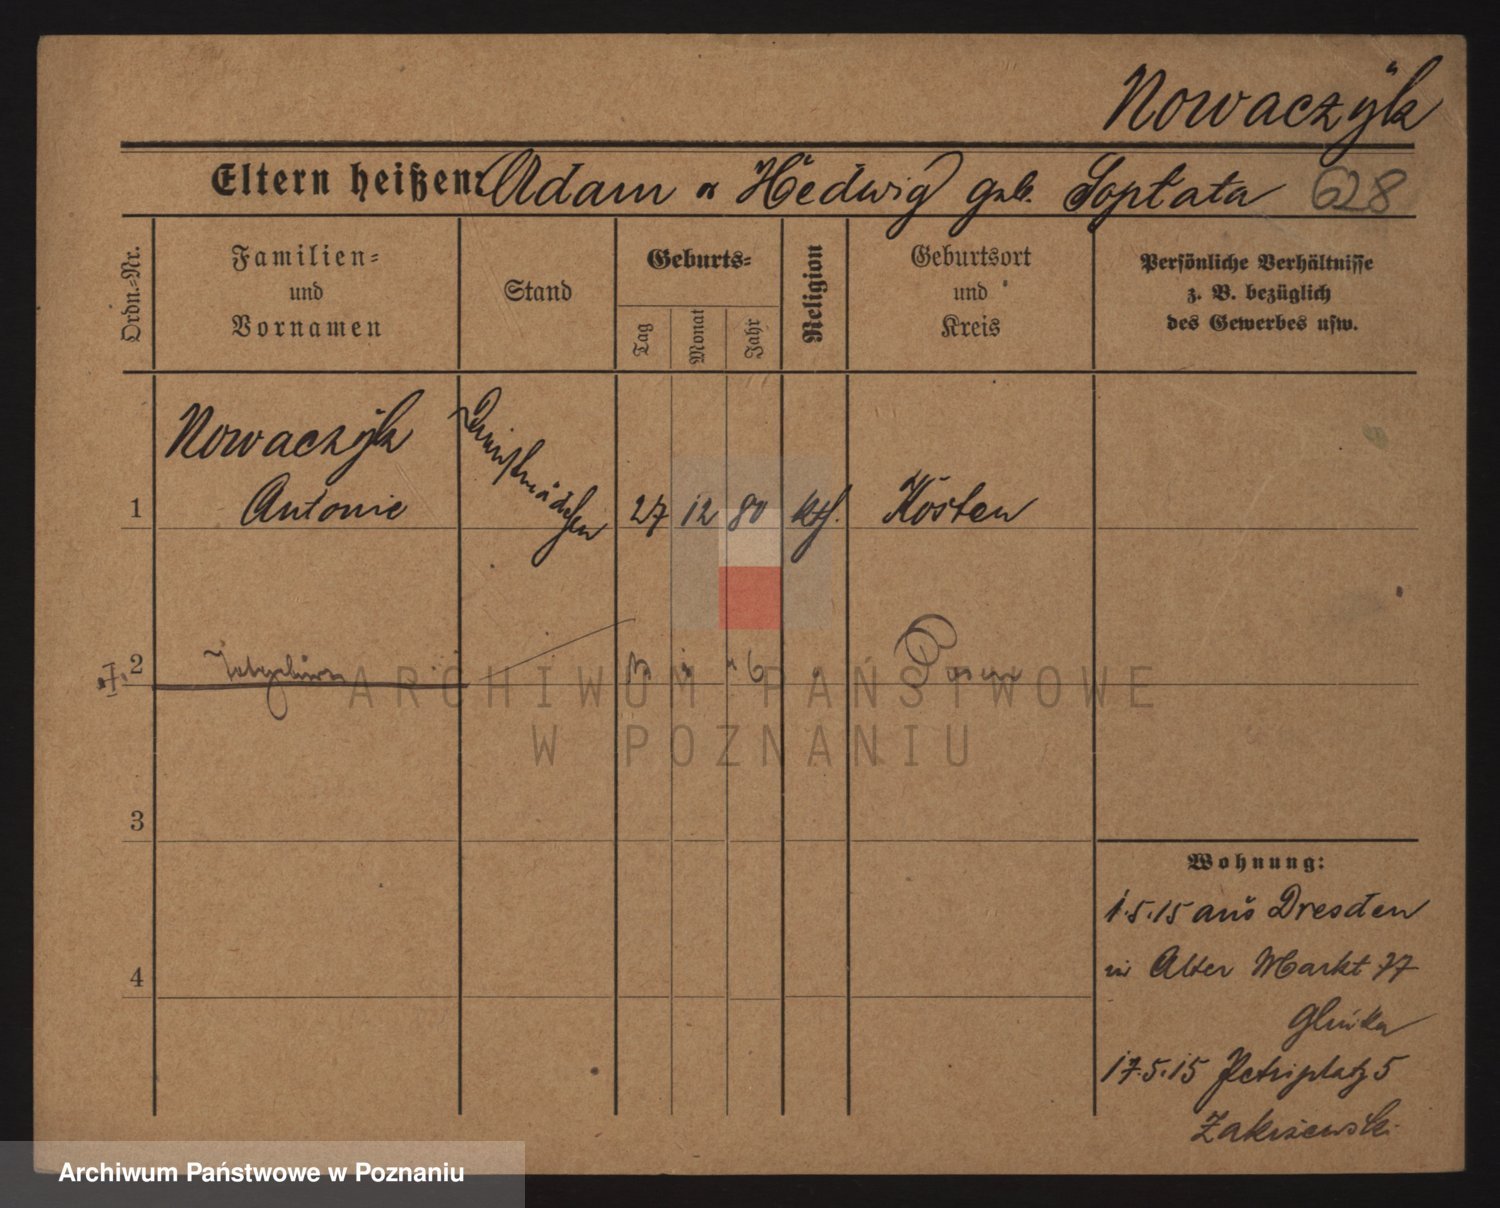 Nowaczÿk
Eltern heißen: Adam u Hedwig geb. Soptata 628
Ordn.=Nr.
Familien=
und
Vornamen
Stand
Geburts=
Tag
Monat
Jahr
Religion
Geburtsort
und
Kreis
Persönliche Verhältnisse
z. B. bezüglich
des Gewerbes usw.
Nowaczÿk
Dienstmädchen
1 Antonie 27 12 80 kth. Kosten
2 Posen
3
4
Wohnung:
1.5.15 aus Dresden
in Alter Markt 77
17.5.15 Petriplatz 5
Zakrzewski
ARCHIWUM PAŃSTWOWE
W POZNANIU
Archiwum Państwowe w Poznaniu